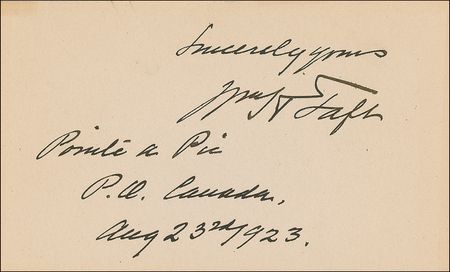 Sincerely yours
Wm H Taft
Pointe a Pic
P.Q. Canada,
Aug 23rd/1923.